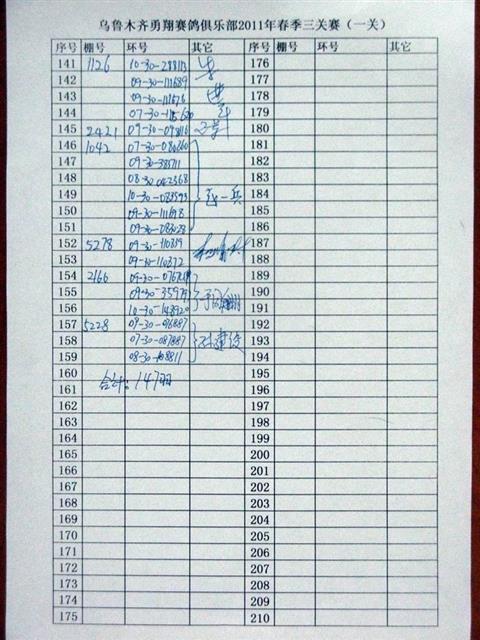 乌鲁木齐勇翔赛鸽俱乐部2011年春季三关赛（一关）
序号 棚号 环号 其它 序号 棚号 环号 其它
141 1126 10-30-288113 176
142 09-30-111689 177
143 09-30-111576 178
144 179
145 2421 180
146 1042 07-30-080260 181
147 09-30-385711 182
148 08-30-042368 183
149 10-30-083593 184
150 09-30-111698 185
151 09-30-083023 186
152 5278 09-30-110319 187
153 09-30-110372 188
154 2166 189
155 190
156 10-30-148920 191
157 5228 09-30-016887 192
158 07-30-087887 193
159 08-30-108811 194
160 195
161 合计：147羽 196
162 197
163 198
164 199
165 200
166 201
167 202
168 203
169 204
170 205
171 206
172 207
173 208
174 209
175 210